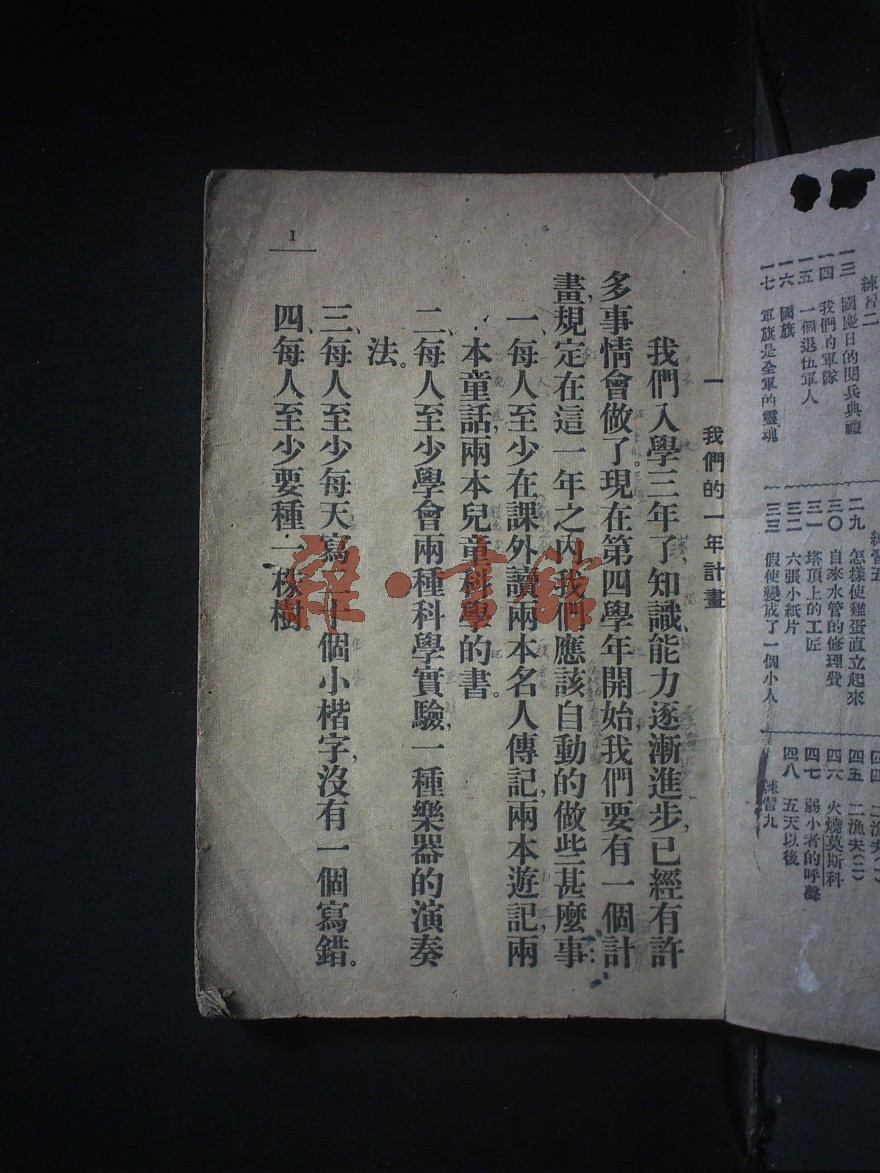 練習二
一三 國慶日的閱兵典禮
一四 我們的軍隊
一五 一個退伍軍人
一六 國旗
一七 軍旗是全軍的靈魂
練習五
二九 怎樣使雞蛋直立起來
三〇 自來水管的修理發
三一 塔頂上的工匠
三二 六張小紙片
三三 假使變成了一個小人
四四 二漁夫(一)
四五 二漁夫(二)
四六 火燒莫斯科
四七 弱小者的呼聲
四八 五天以後
練習九
一 我們的一年計畫
我們入學三年了,知識能力逐漸進步,已經有許
多事情會做了。現在第四學年開始,我們要有一個計
畫,規定在這一年之內我們應該自動的做些甚麼事:
一、每人至少在課外讀兩本名人傳記,兩本遊記,兩
本童話,兩本兒童科學的書。
二、每人至少學會兩種科學實驗,一種樂器的演奏
法。
三、每人至少每天寫二十個小楷字,沒有一個寫錯。
四、每人至少要種一株樹。
1
雜·書館